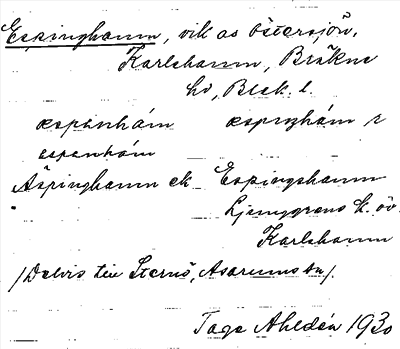 Espinghamn, vik av Östersjön,
Karlshamn, Bräkne
hd, Blek. l.
espinhám espinhám r
espenhám
Äspinghamn ek Espingshamn
Ljunggrens k. öv.
Karlshamn
/Delvis till Sternö, Asarums sn/.
Tage Ahldén 1930